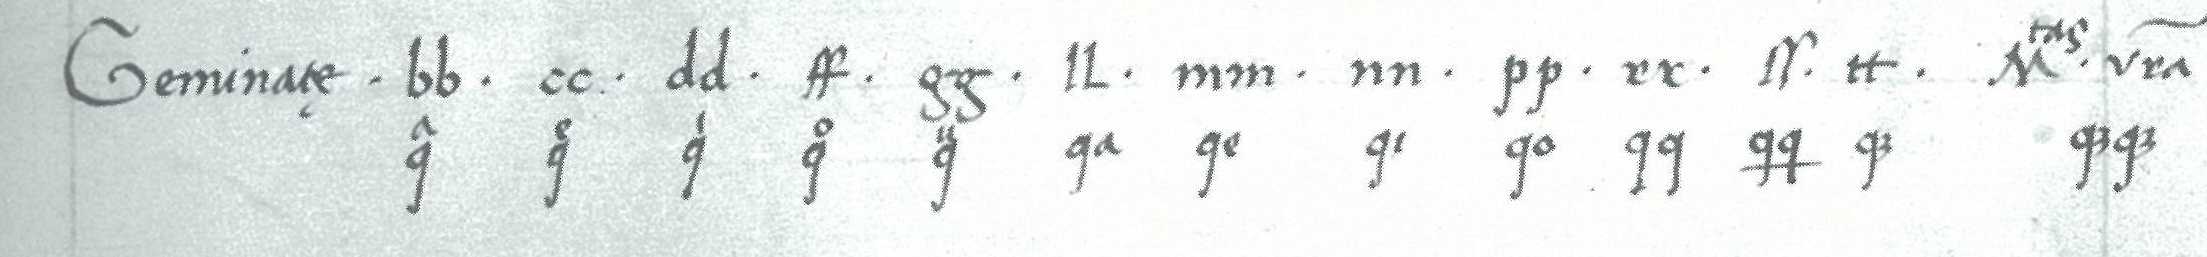 Geminatę · bb · cc · dd · ff · gg · ll · mm · nn · pp · rr · ſſ · tt · M^tas · vr̃a
qᵃ qᵉ qⁱ qᵒ qᵘ qa qe qi qo qq q̱q̱ qꝫ qꝫqꝫ